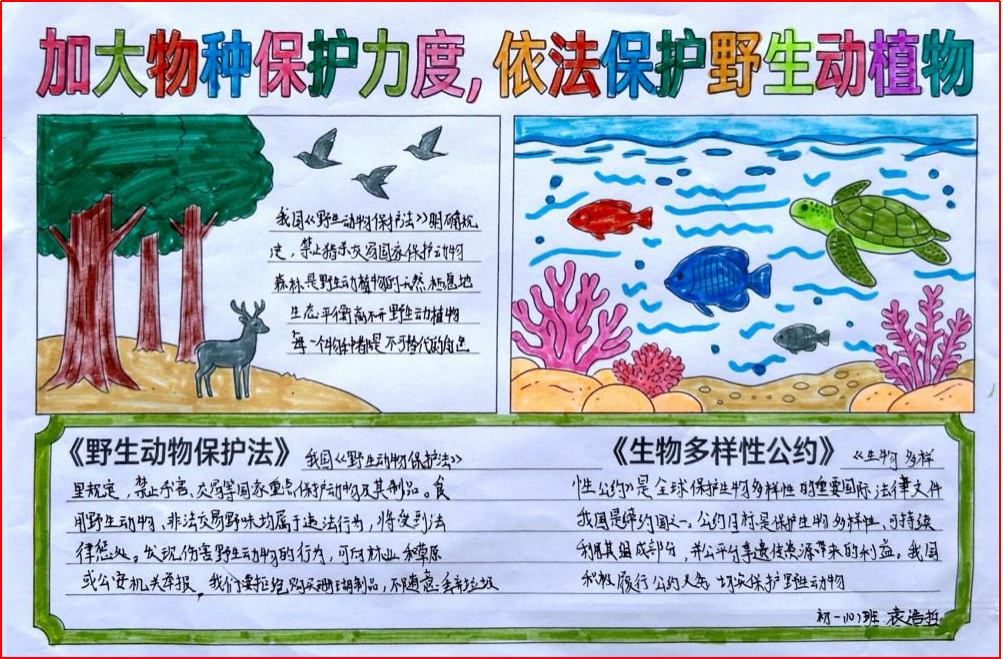 加大物种保护力度,依法保护野生动植物
我国《野生动物保护法》明确规
定,禁止猎杀交易国家保护动物
森林是野生动植物的天然栖息地
生态平衡离不开野生动植物
每一个物种都是不可替代的角色
《野生动物保护法》 我国《野生动物保护法》
里规定,禁止杀害、交易等国家重点保护动物及其制品。食
用野生动物、非法交易野味均属于违法行为,将受到法
律惩处。发现伤害野生动物的行为,可向林业和草原
或公安机关举报。我们要拒绝购买珊瑚制品,不随意丢弃垃圾
《生物多样性公约》 《生物多样
性公约》是全球保护生物多样性的重要国际法律文件
我国是缔约国之一。公约目标是保护生物多样性、可持续
利用其组成部分,并公平分享遗传资源带来的利益。我国
积极履行公约义务 切实保护野生动物
初一(1)班 袁浩哲